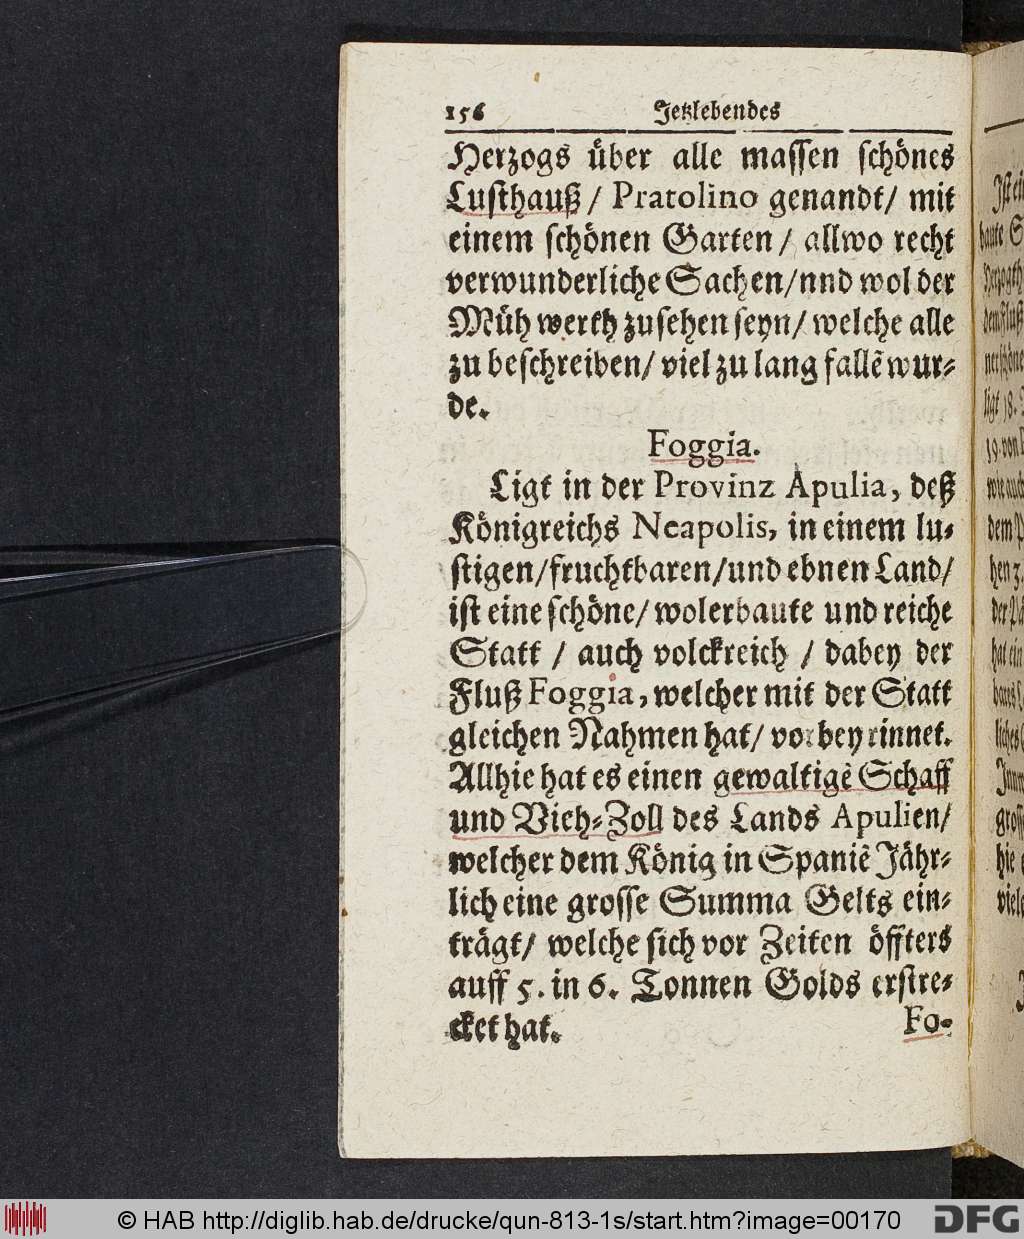 156 Jetzlebendes
Herzogs über alle massen schönes
Lusthauß / Pratolino genandt/ mit
einem schönen Garten / allwo recht
verwunderliche Sachen/nnd wol der
Müh werth zusehen seyn/ welche alle
zu beschreiben/ viel zu lang fallẽ wur-
de.
Foggia.
Ligt in der Provinz Apulia, deß
Königreichs Neapolis, in einem lu-
stigen/fruchtbaren/und ebnen Land/
ist eine schöne/ wolerbaute und reiche
Statt / auch volckreich / dabey der
Fluß Foggia, welcher mit der Statt
gleichen Nahmen hat/ vorbey rinnet.
Allhie hat es einen gewaltigẽ Schaff
und Vieh-Zoll des Lands Apulien/
welcher dem König in Spaniẽ Jähr-
lich eine grosse Summa Gelts ein-
trägt/ welche sich vor Zeiten öffters
auff 5. in 6. Tonnen Golds erstre-
cket hat.
Fo-
© HAB http://diglib.hab.de/drucke/qun-813-1s/start.htm?image=00170
DFG